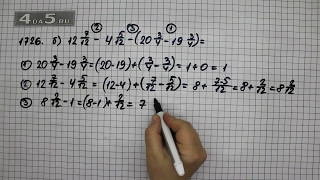 4DA5.RU
② ③ ①
1726. б) 12 7/12 - 4 5/12 - (20 3/7 - 19 3/7) =
① 20 3/7 - 19 3/7 = (20-19) + (3/7 - 3/7) = 1 + 0 = 1
② 12 7/12 - 4 5/12 = (12-4) + (7/12 - 5/12) = 8 + 7-5/12 = 8 + 2/12 = 8 2/12
③ 8 2/12 - 1 = (8-1) + 2/12 = 7